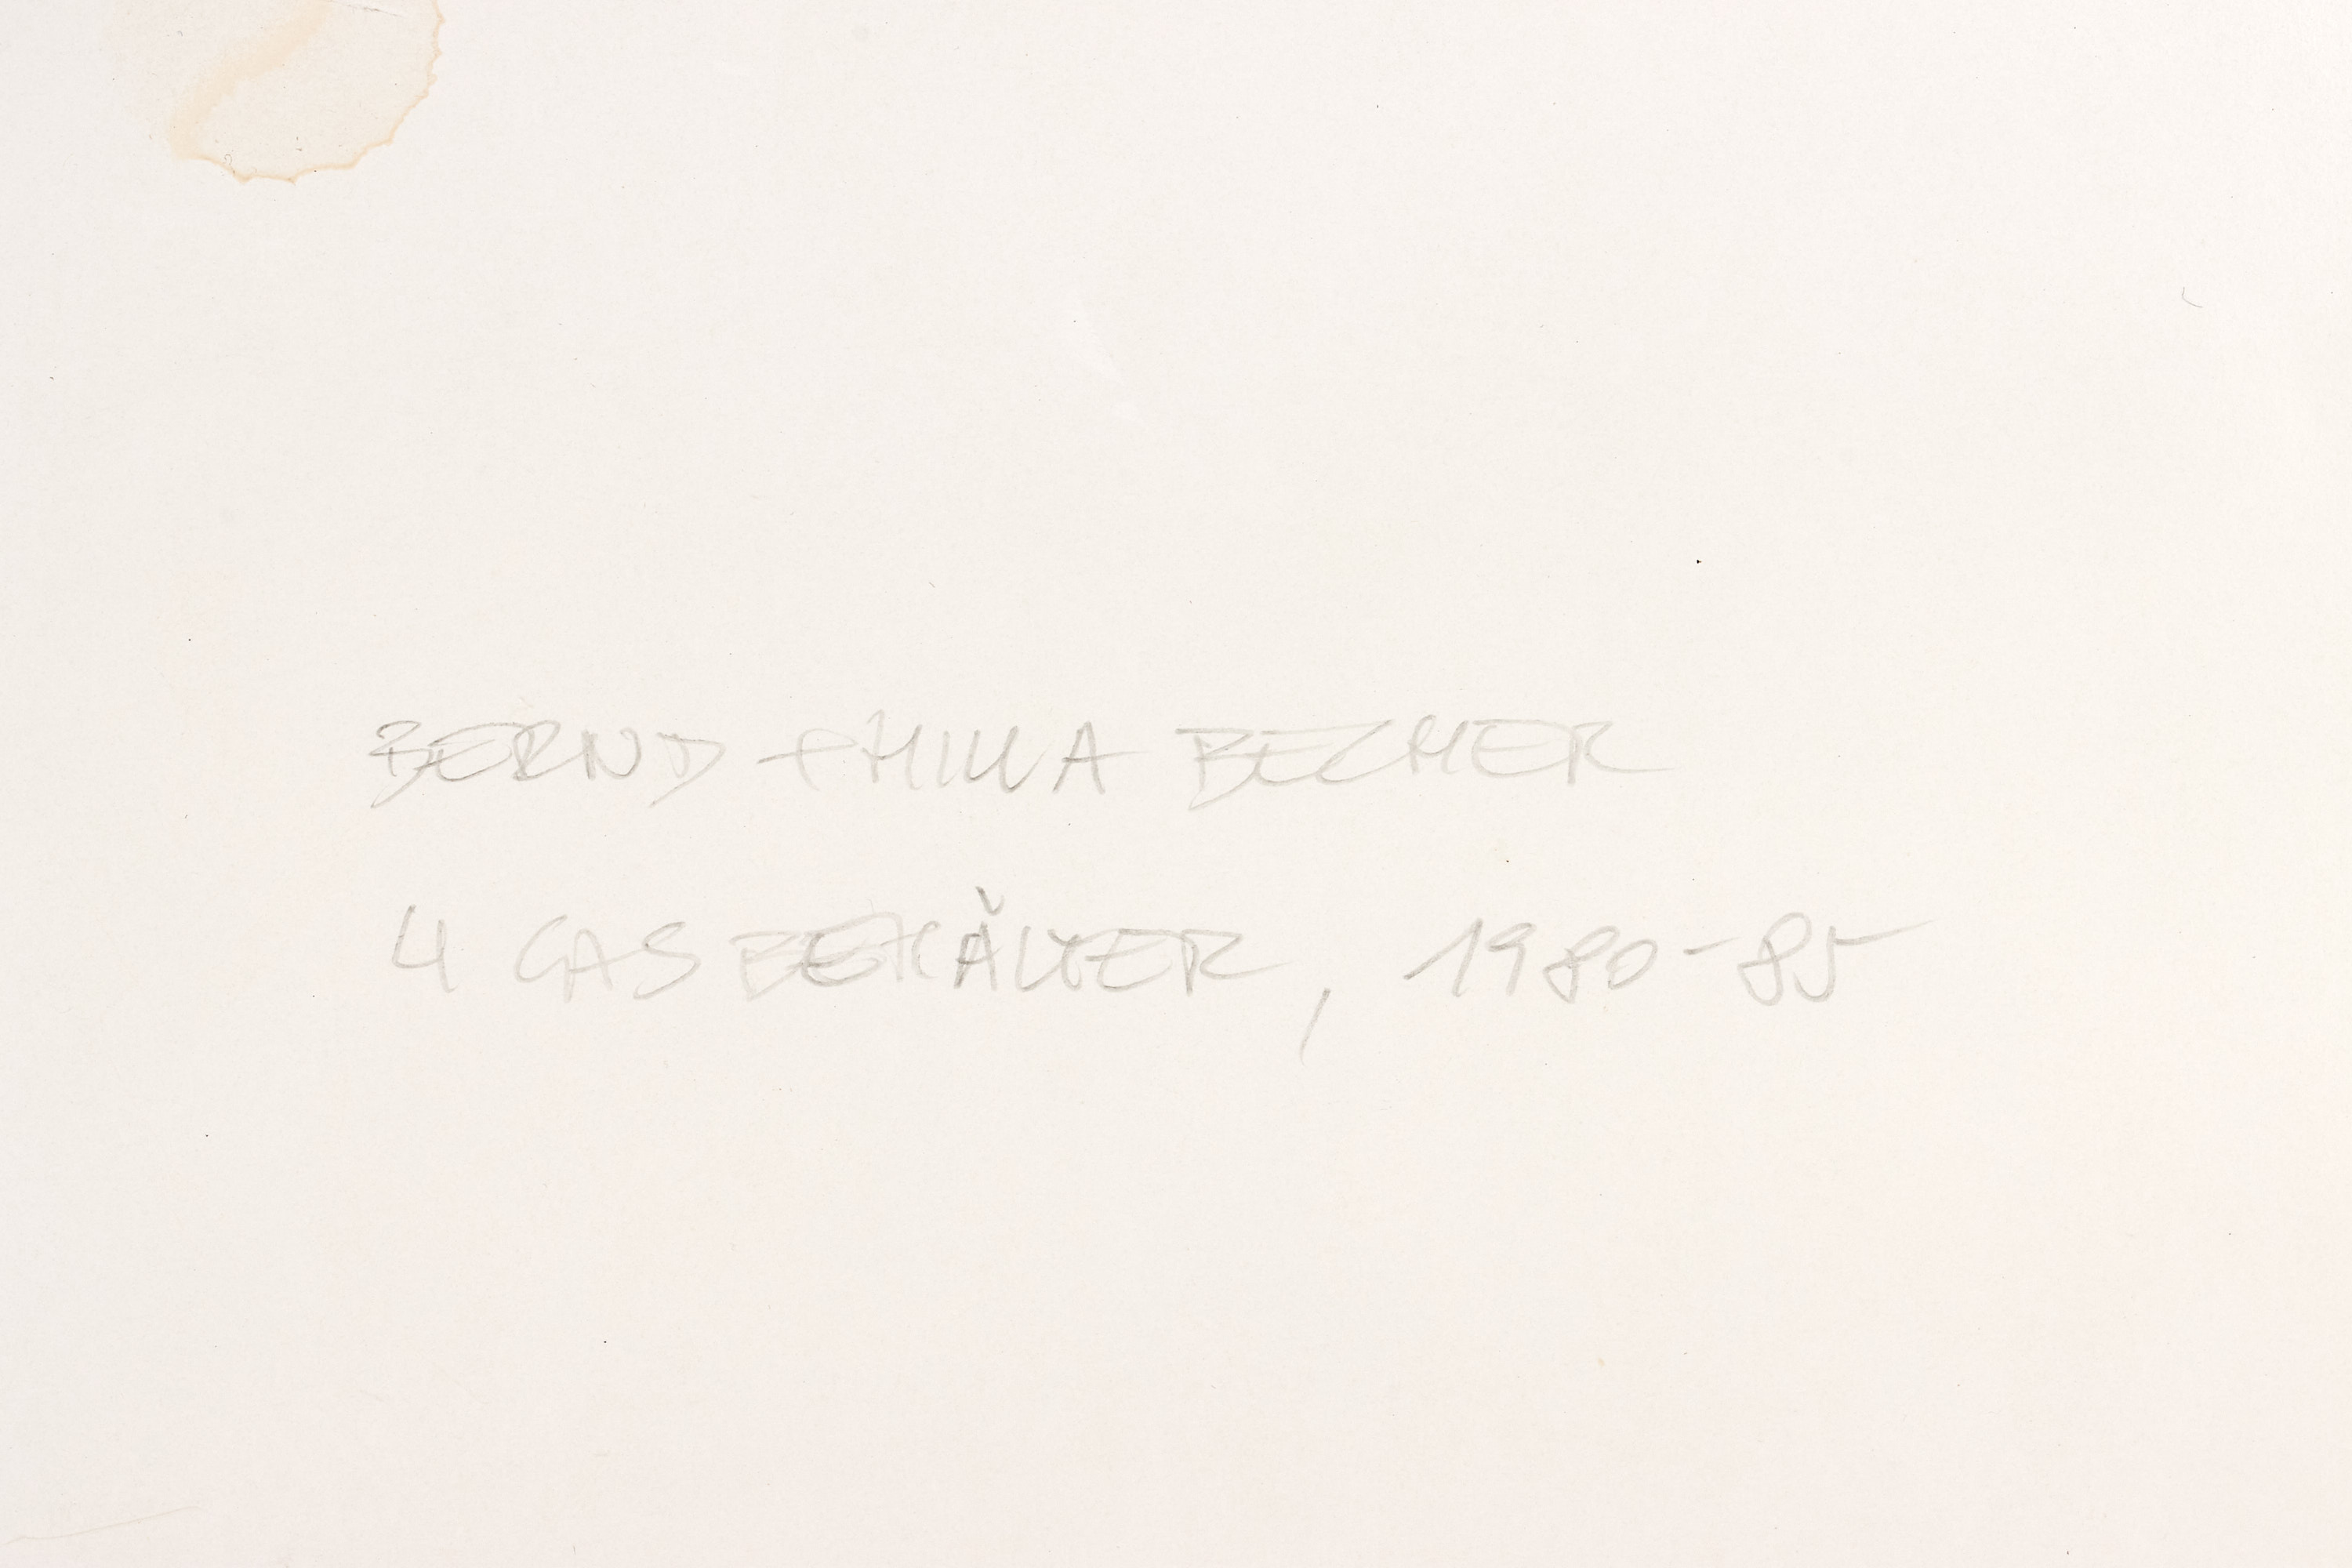 BERND + HILLA BECHER
4 GASBEHÄLTER, 1980-85